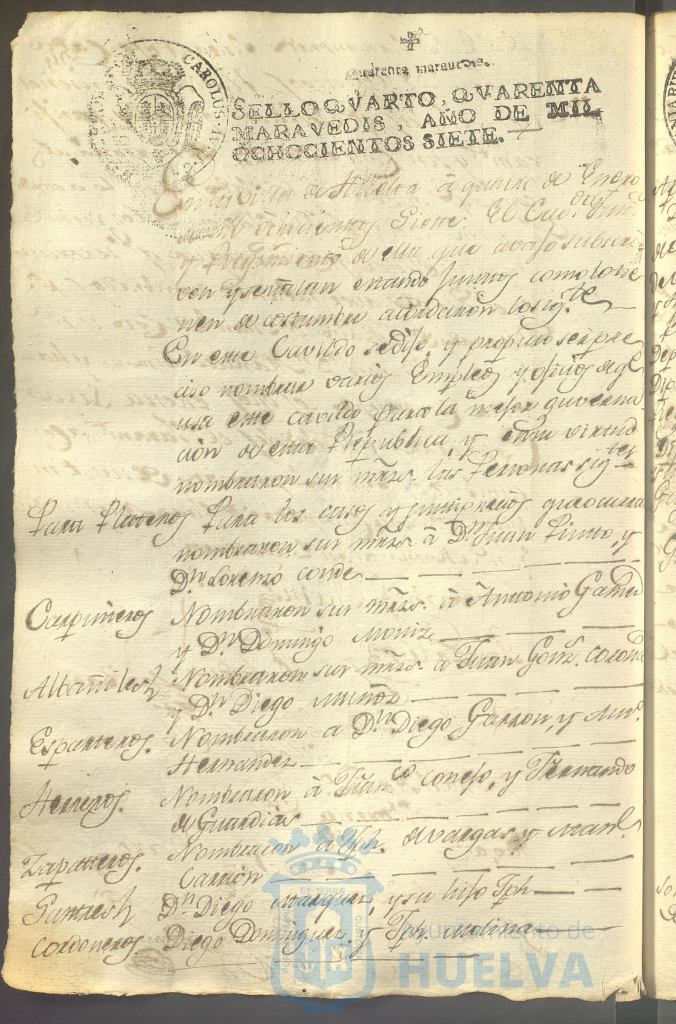 CAROLUS IV
Quarenta maravedis.
SELLO QVARTO, QVARENTA
MARAVEDIS, AÑO DE MIL
OCHOCIENTOS SIETE.
En la villa de Huelva à quatro de Enero
ochocientos Siete. El
y Regimiento de ella que avajo subscri
ven y señalan estando juntos como lo tie
nen de costumbre acordaron lo sig.te
En este Cavildo se dijo, y propuso ser pre
ciso nombrar varios Empleos y oficios de q.e
usa este cavildo para la mejor governa
ción de esta Republica y en su virtud
nombraron sus mrzs. las Personas sig.tes
Para Plateros Para los casos y que ocurra
nombraron sus mrzs. à D.n Juan Pinto, y
D.n Lorenzo Conde
Carpinteros Nombraron sus mrzs. à Antonio
y D.n Domingo Moniz
Albañiles Nombraron sus mrzs. à Juan Gonz.
y D.n Diego Muñoz
Esparteros. Nombraron a D.n Diego Garzon, y
Hernandez
Herreros. Nombraron à Fran.co Conejo, y Fernando
de Guardias
Zapateros. Nombraron à Jph. de Vargas y Man.l
Carrion
D.n Diego Marquez, y su hijo Jph
Cordoneros. Diego Dominguez, y Jph. Molina
Ayuntamiento de
HUELVA